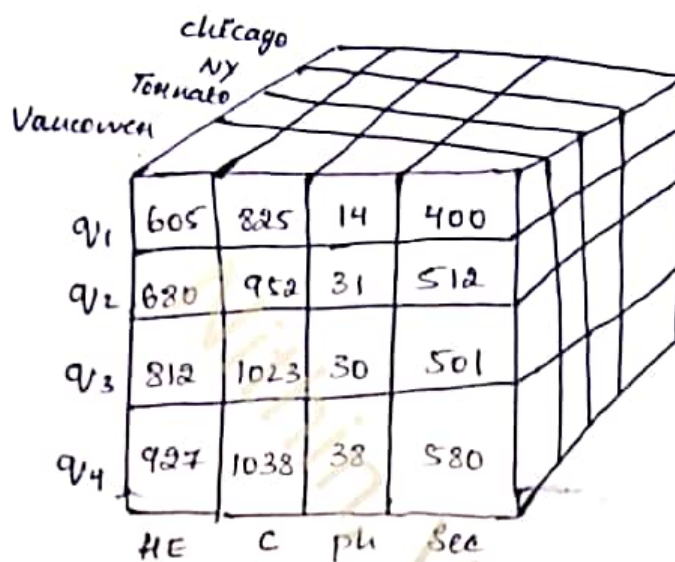 chicago
NY
Tornato
Vancouver
q1 605 825 14 400
q2 680 952 31 512
q3 812 1023 30 501
q4 927 1038 38 580
HE C ph Sec